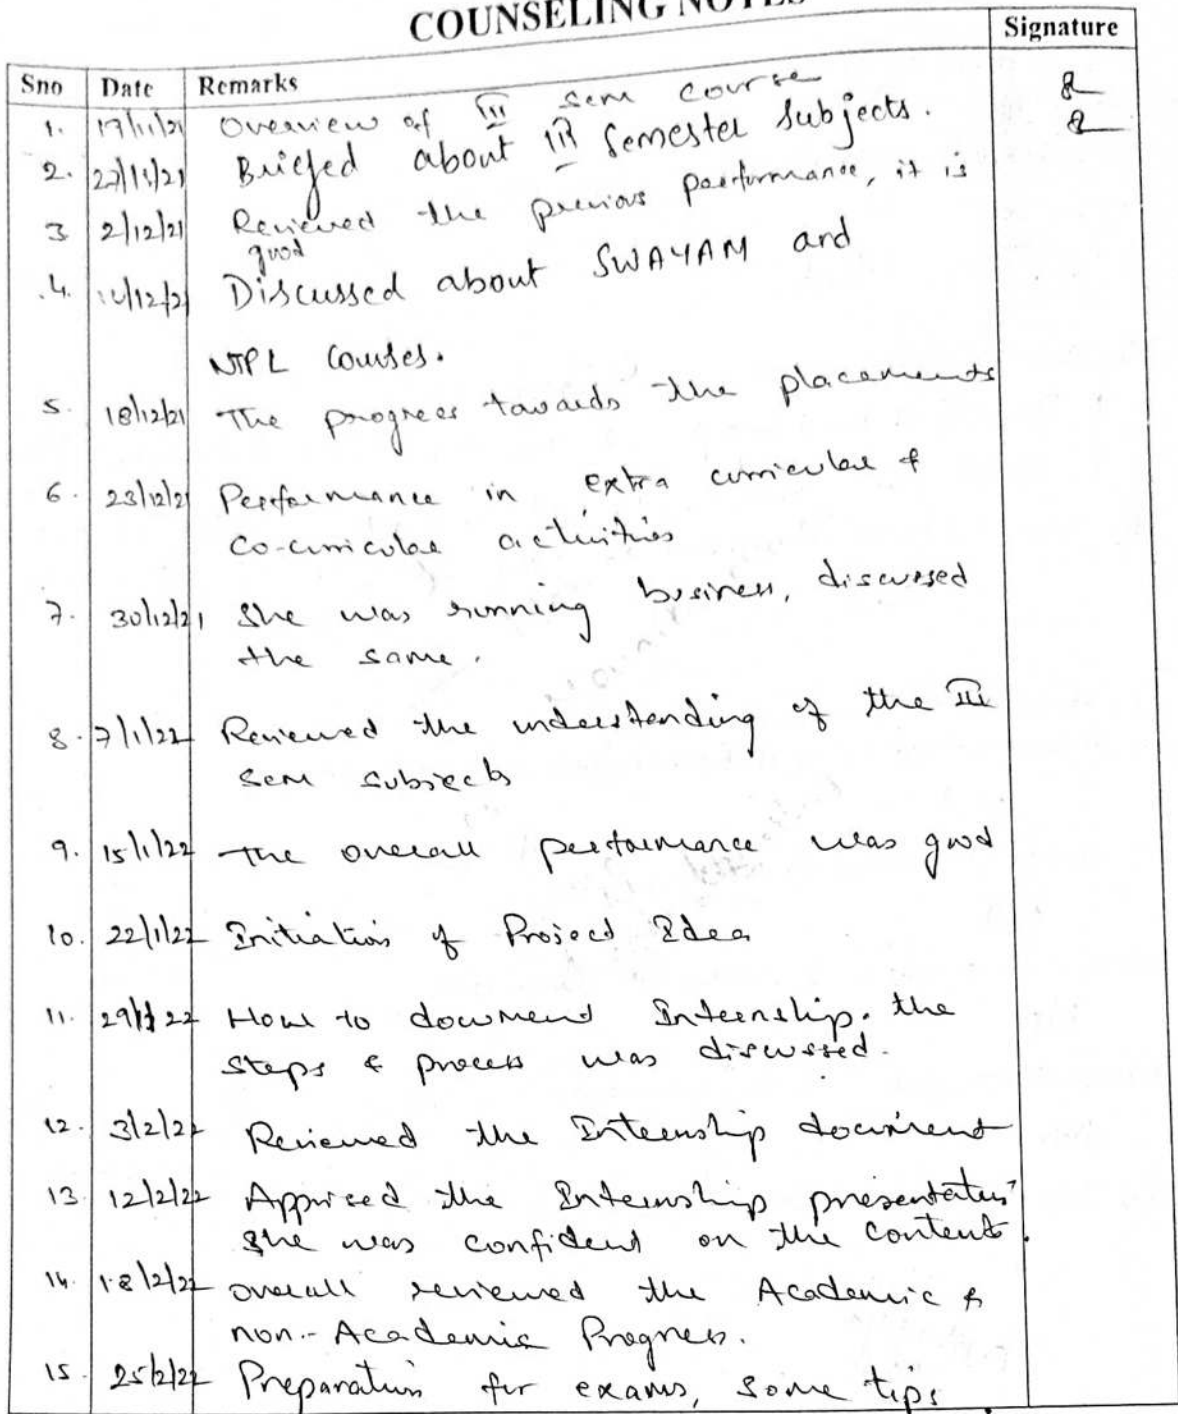 COUNSELING NOTES
Signature
Sno Date Remarks
1. 17/11/21 Overview of III sem course
2. 22/11/21 Briefed about III Semester Subjects.
3 2/12/21 Reviewed the previous performance, it is
good
4. /12/21 Discussed about SWAYAM and
NTPL Courses.
5. 18/12/21 The progress towards the placements
6. 23/12/21 Performance in extra curricular &
Co-curricular activities
7. 30/12/21 She was running business, discussed
the same.
8. 7/1/22 Reviewed the understanding of the III
sem subjects
9. 15/1/22 The overall performance was good
10. 22/1/22 Initiation of Project Idea
11. 29/1/22 How to document Internship. the
steps & process was discussed.
12. 3/2/22 Reviewed the Internship document
13. 12/2/22 Apprised the Internship presentation
She was confident on the content.
14. 18/2/22 overall reviewed the Academic &
non-Academic Progress.
15 25/2/22 Preparation for exams, some tips.